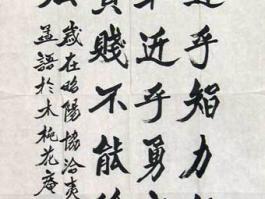 乎智力
近乎勇
賤不能
歲在昭陽協洽
孟語於木桃花庵